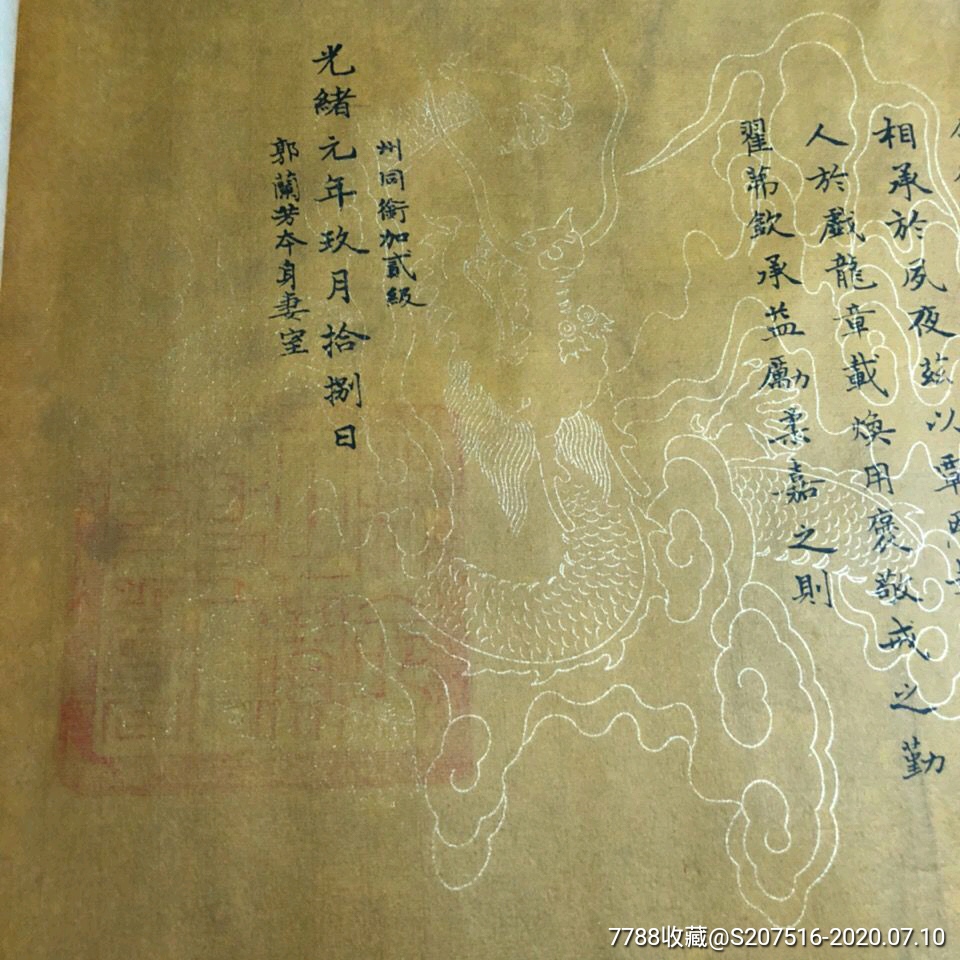 相承於夙夜兹以覃恩
人於戲龍章載煥用褒敬戒之勤
翟茀欽承益勵柔嘉之則
州同銜加貳級
光緒元年玖月拾捌日
郭蘭芳本身妻室
7788收藏@S207516-2020.07.10